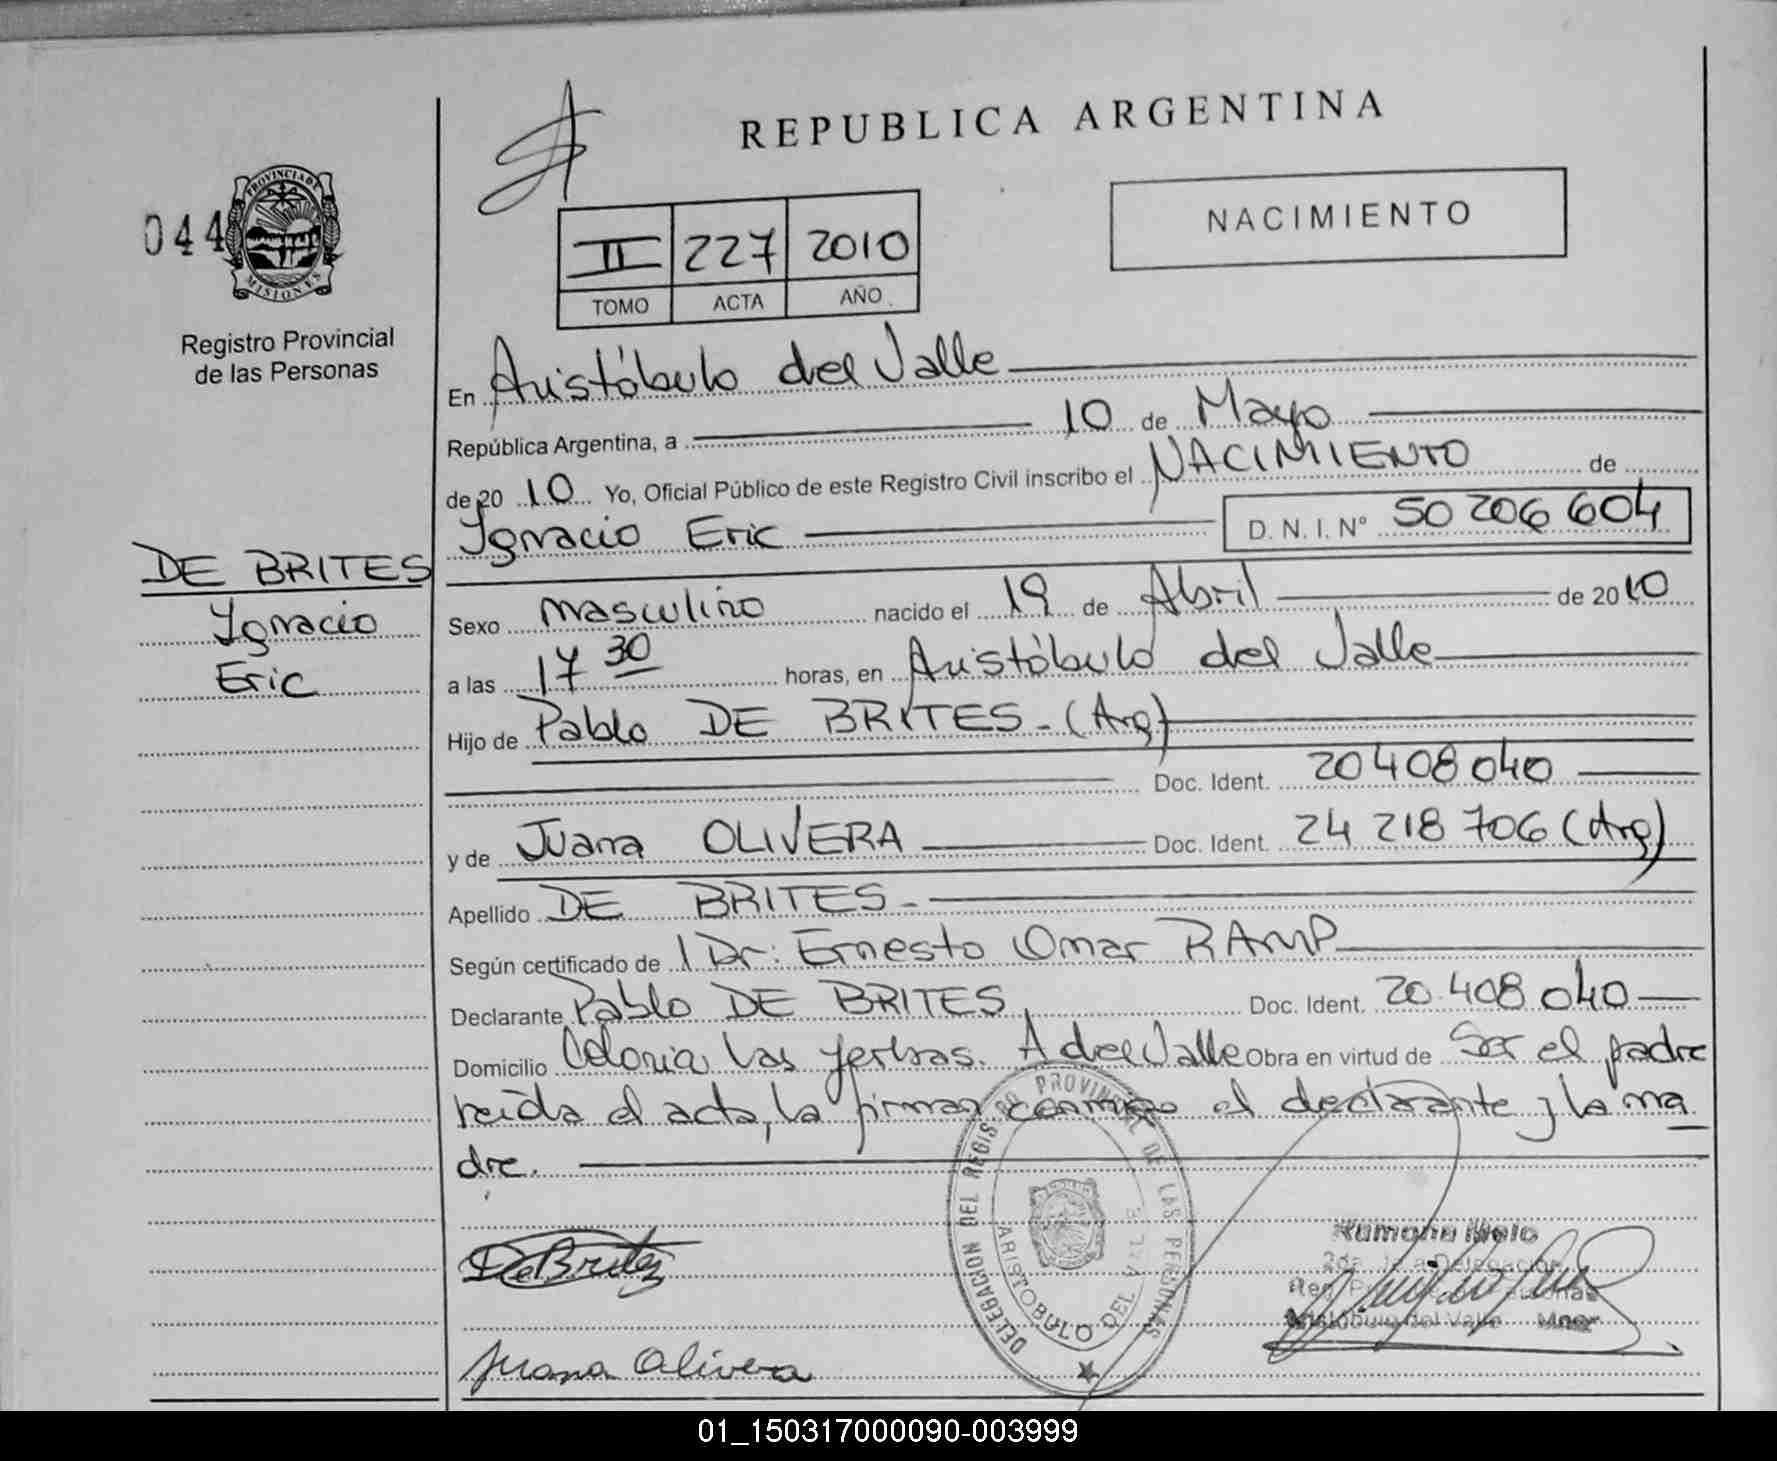 REPUBLICA ARGENTINA
044
PROVINCIA DE
MISIONES
Registro Provincial
de las Personas
II 227 2010
TOMO ACTA AÑO
NACIMIENTO
En Aristóbulo del Valle
República Argentina, a 10 de Mayo
de 2010 Yo, Oficial Público de este Registro Civil inscribo el NACIMIENTO de
Ygnacio Eric D. N. I. N° 50 206 604
DE BRITES
Ygnacio
Eric
Sexo masculino nacido el 19 de Abril de 2010
a las 17 30 horas, en Aristóbulo del Valle
Hijo de Pablo DE BRITES - (Arg)
Doc. Ident. 20 408 040
y de Juana OLIVERA Doc. Ident. 24 218 706 (Arg)
Apellido DE BRITES -
Según certificado de 1 Dr: Ernesto Omar RAMP
Declarante Pablo DE BRITES Doc. Ident. 20.408 040
Domicilio Colonia Las Yerbas. A del Valle Obra en virtud de Ser el padre
leída el acta, la firman conmigo el declarante y la ma
dre.
DELEGACION DEL REGISTRO PROVINCIAL DE LAS PERSONAS
ARISTOBULO DEL VALLE
De Britez
Ramona Melo
Delegación
Aristóbulo del Valle Mnes
Juana Olivera
01_150317000090-003999